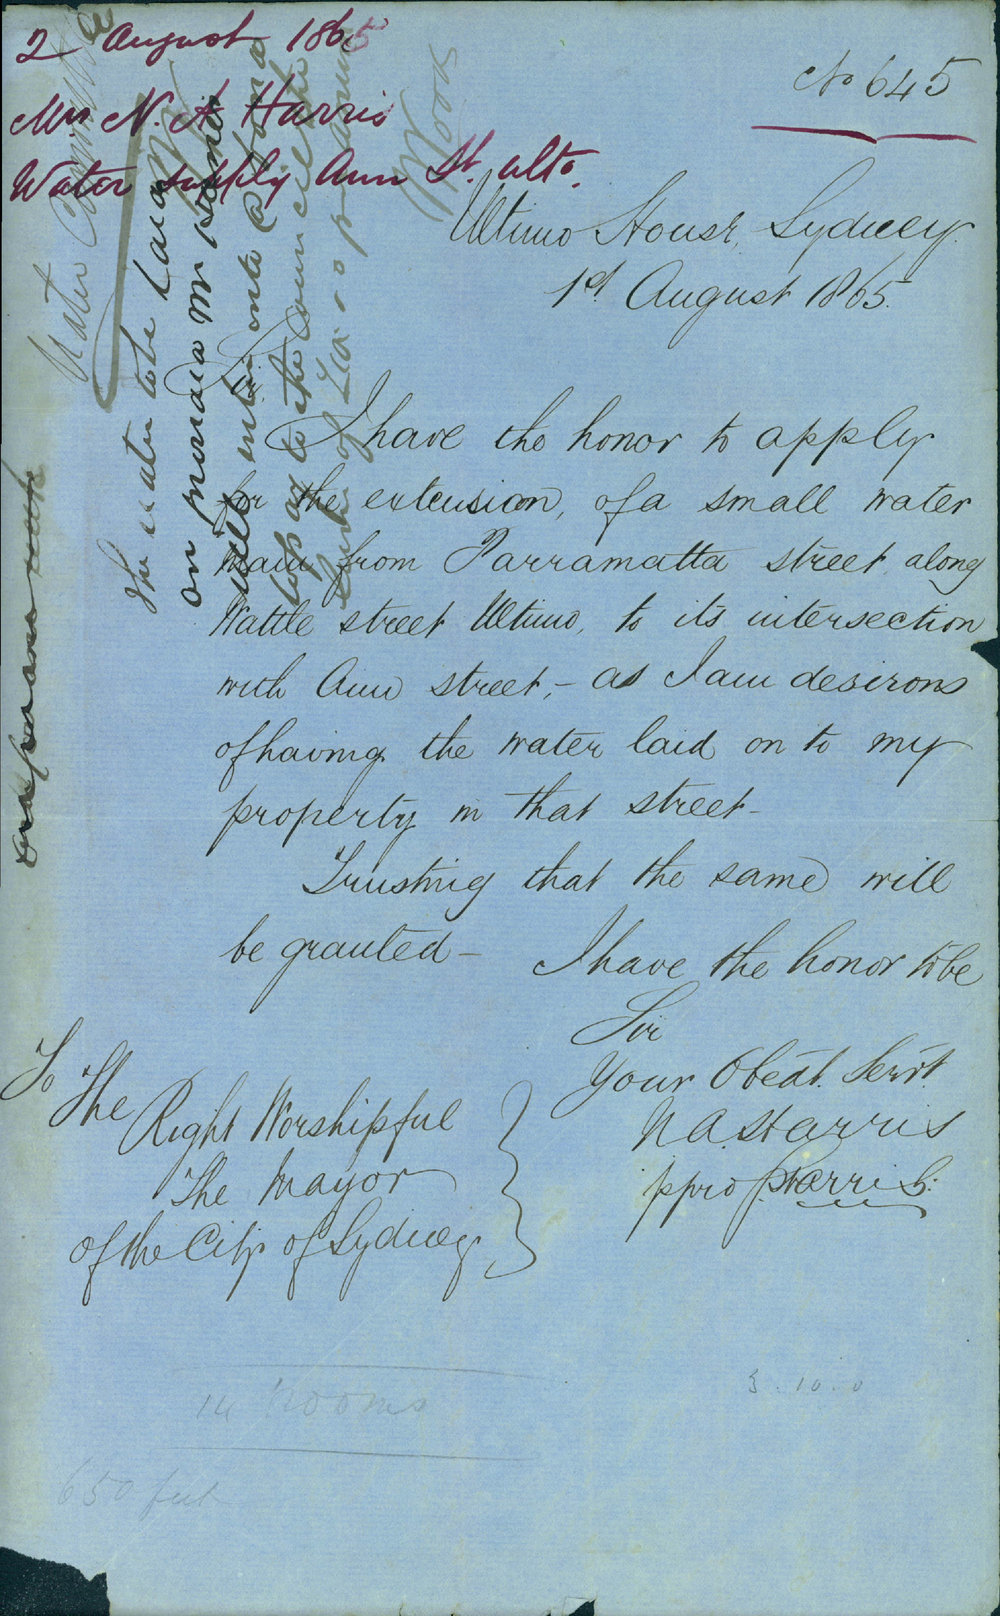 2 August 1865
Mrs N. A Harris
Water supply Ann St. Ulto.
No 645
Ultimo House, Sydney.
1st August 1865.
Sir
I have the honor to apply
for the extension, of a small water
main from Parramatta street along
Wattle street Ultimo, to its intersection
with Ann street, – as I am desirous
of having the water laid on to my
property in that street –
Trusting that the same will
be granted –
I have the honor to be
Sir
Your Obedt. Servt
N A Harris
ppro J Harris
To The
Right Worshipful
The Mayor
of the City of Sydney
14 Rooms
3 . 10 . 0
650 feet
Water Committee
The water to be laid
on provided Mr
will enter into a bond
to the Council